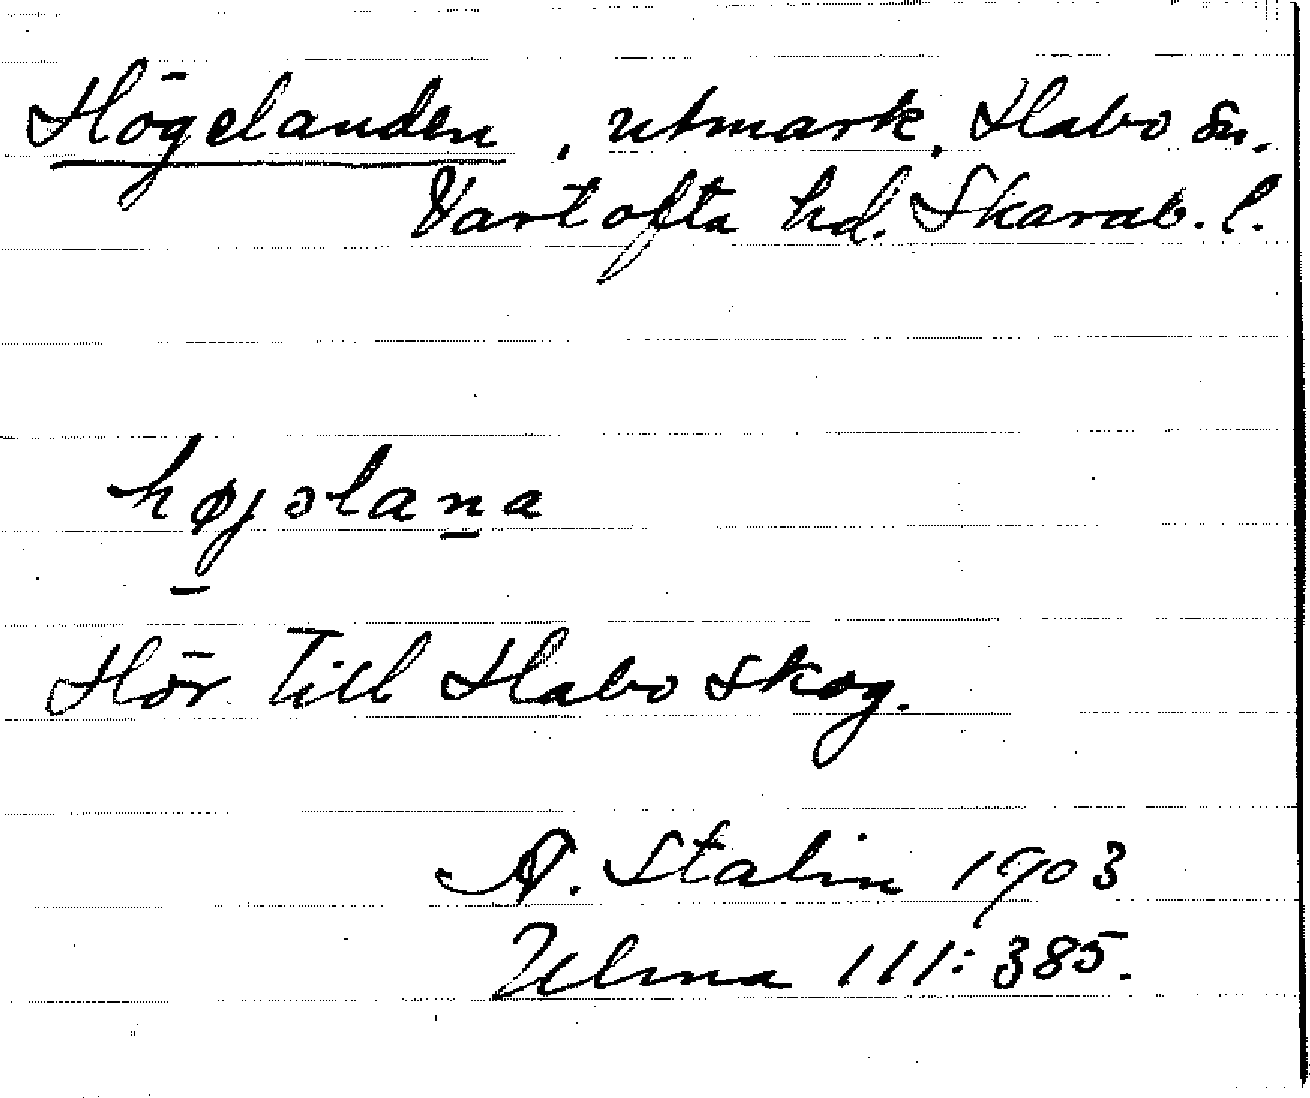 Högelanden, utmark, Habo sn.
Vartofta hd. Skarab. l.
højəlana
Hör till Habo skog.
A. Stalin 1903
Ulma 111:385.